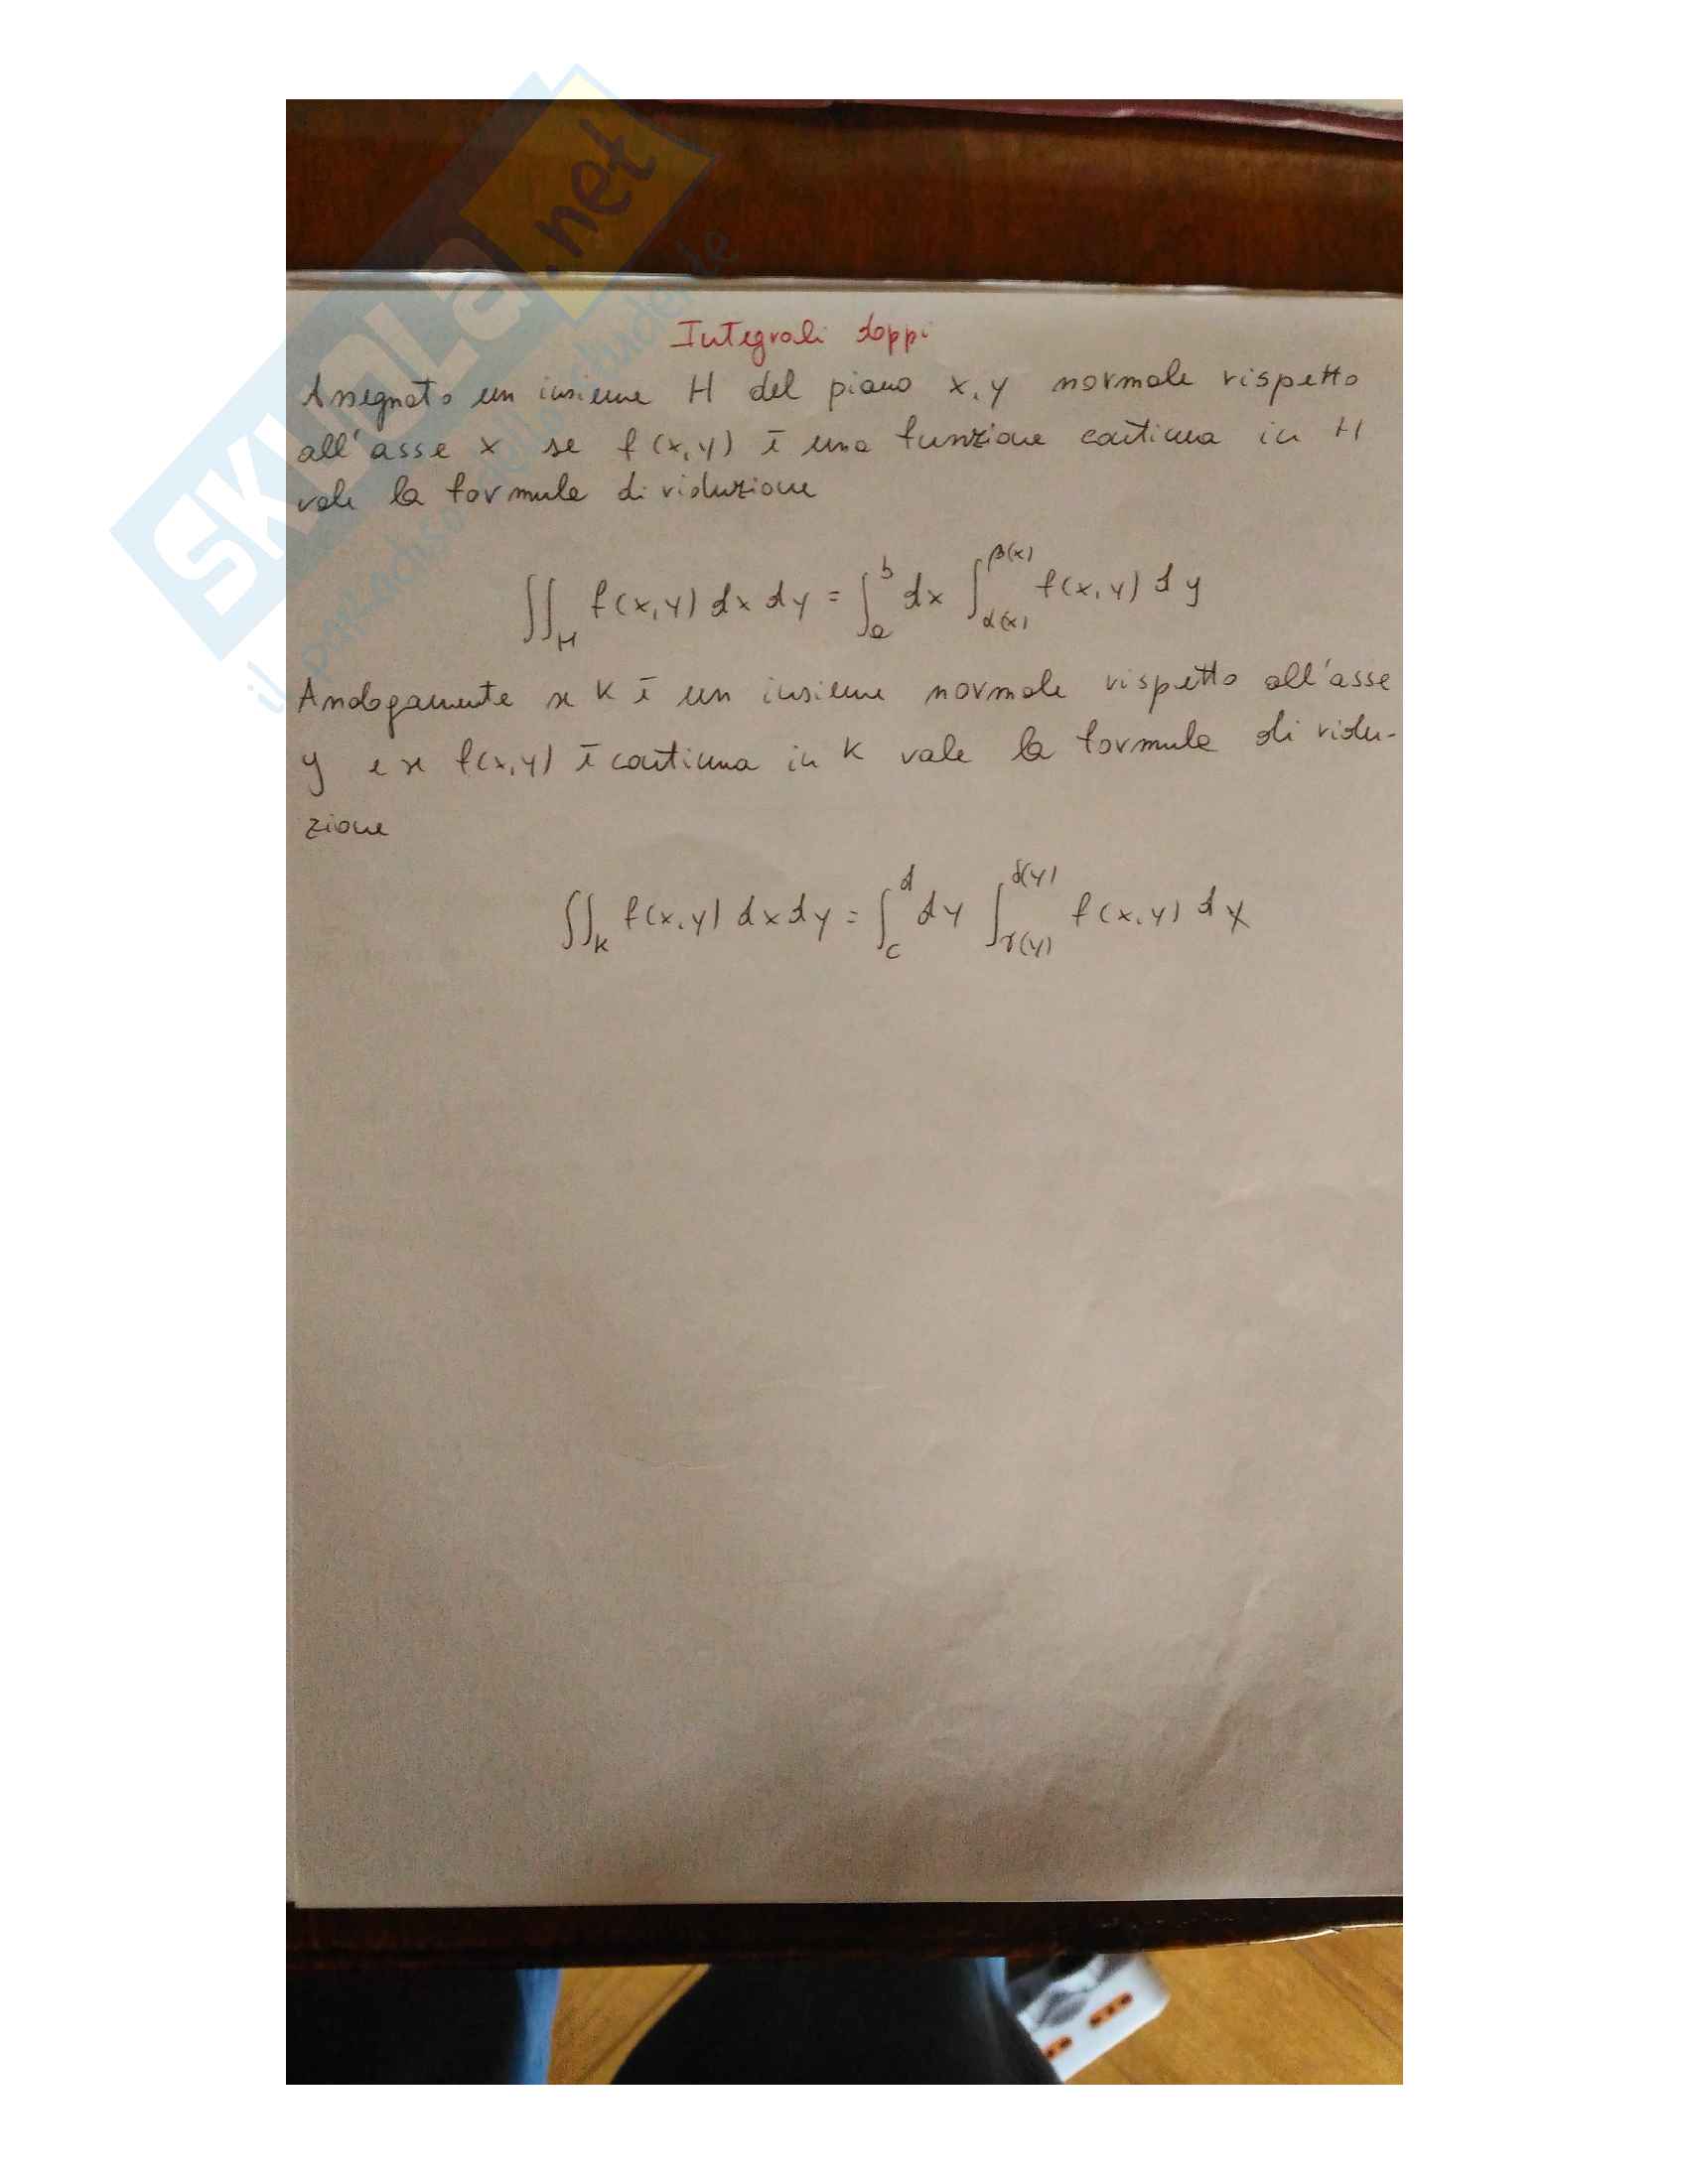 SKUOLA.net
il paradiso dello studente
Integrali doppi
Assegnato un insieme H del piano x,y normale rispetto
all'asse x se f(x,y) è una funzione continua in H
vale la formula di riduzione
∬_H f(x,y) dx dy = ∫_a^b dx ∫_α(x)^β(x) f(x,y) dy
Analogamente se K è un insieme normale rispetto all'asse
y e se f(x,y) è continua in K vale la formula di ridu-
zione
∬_K f(x,y) dx dy = ∫_c^d dy ∫_γ(y)^δ(y) f(x,y) dx